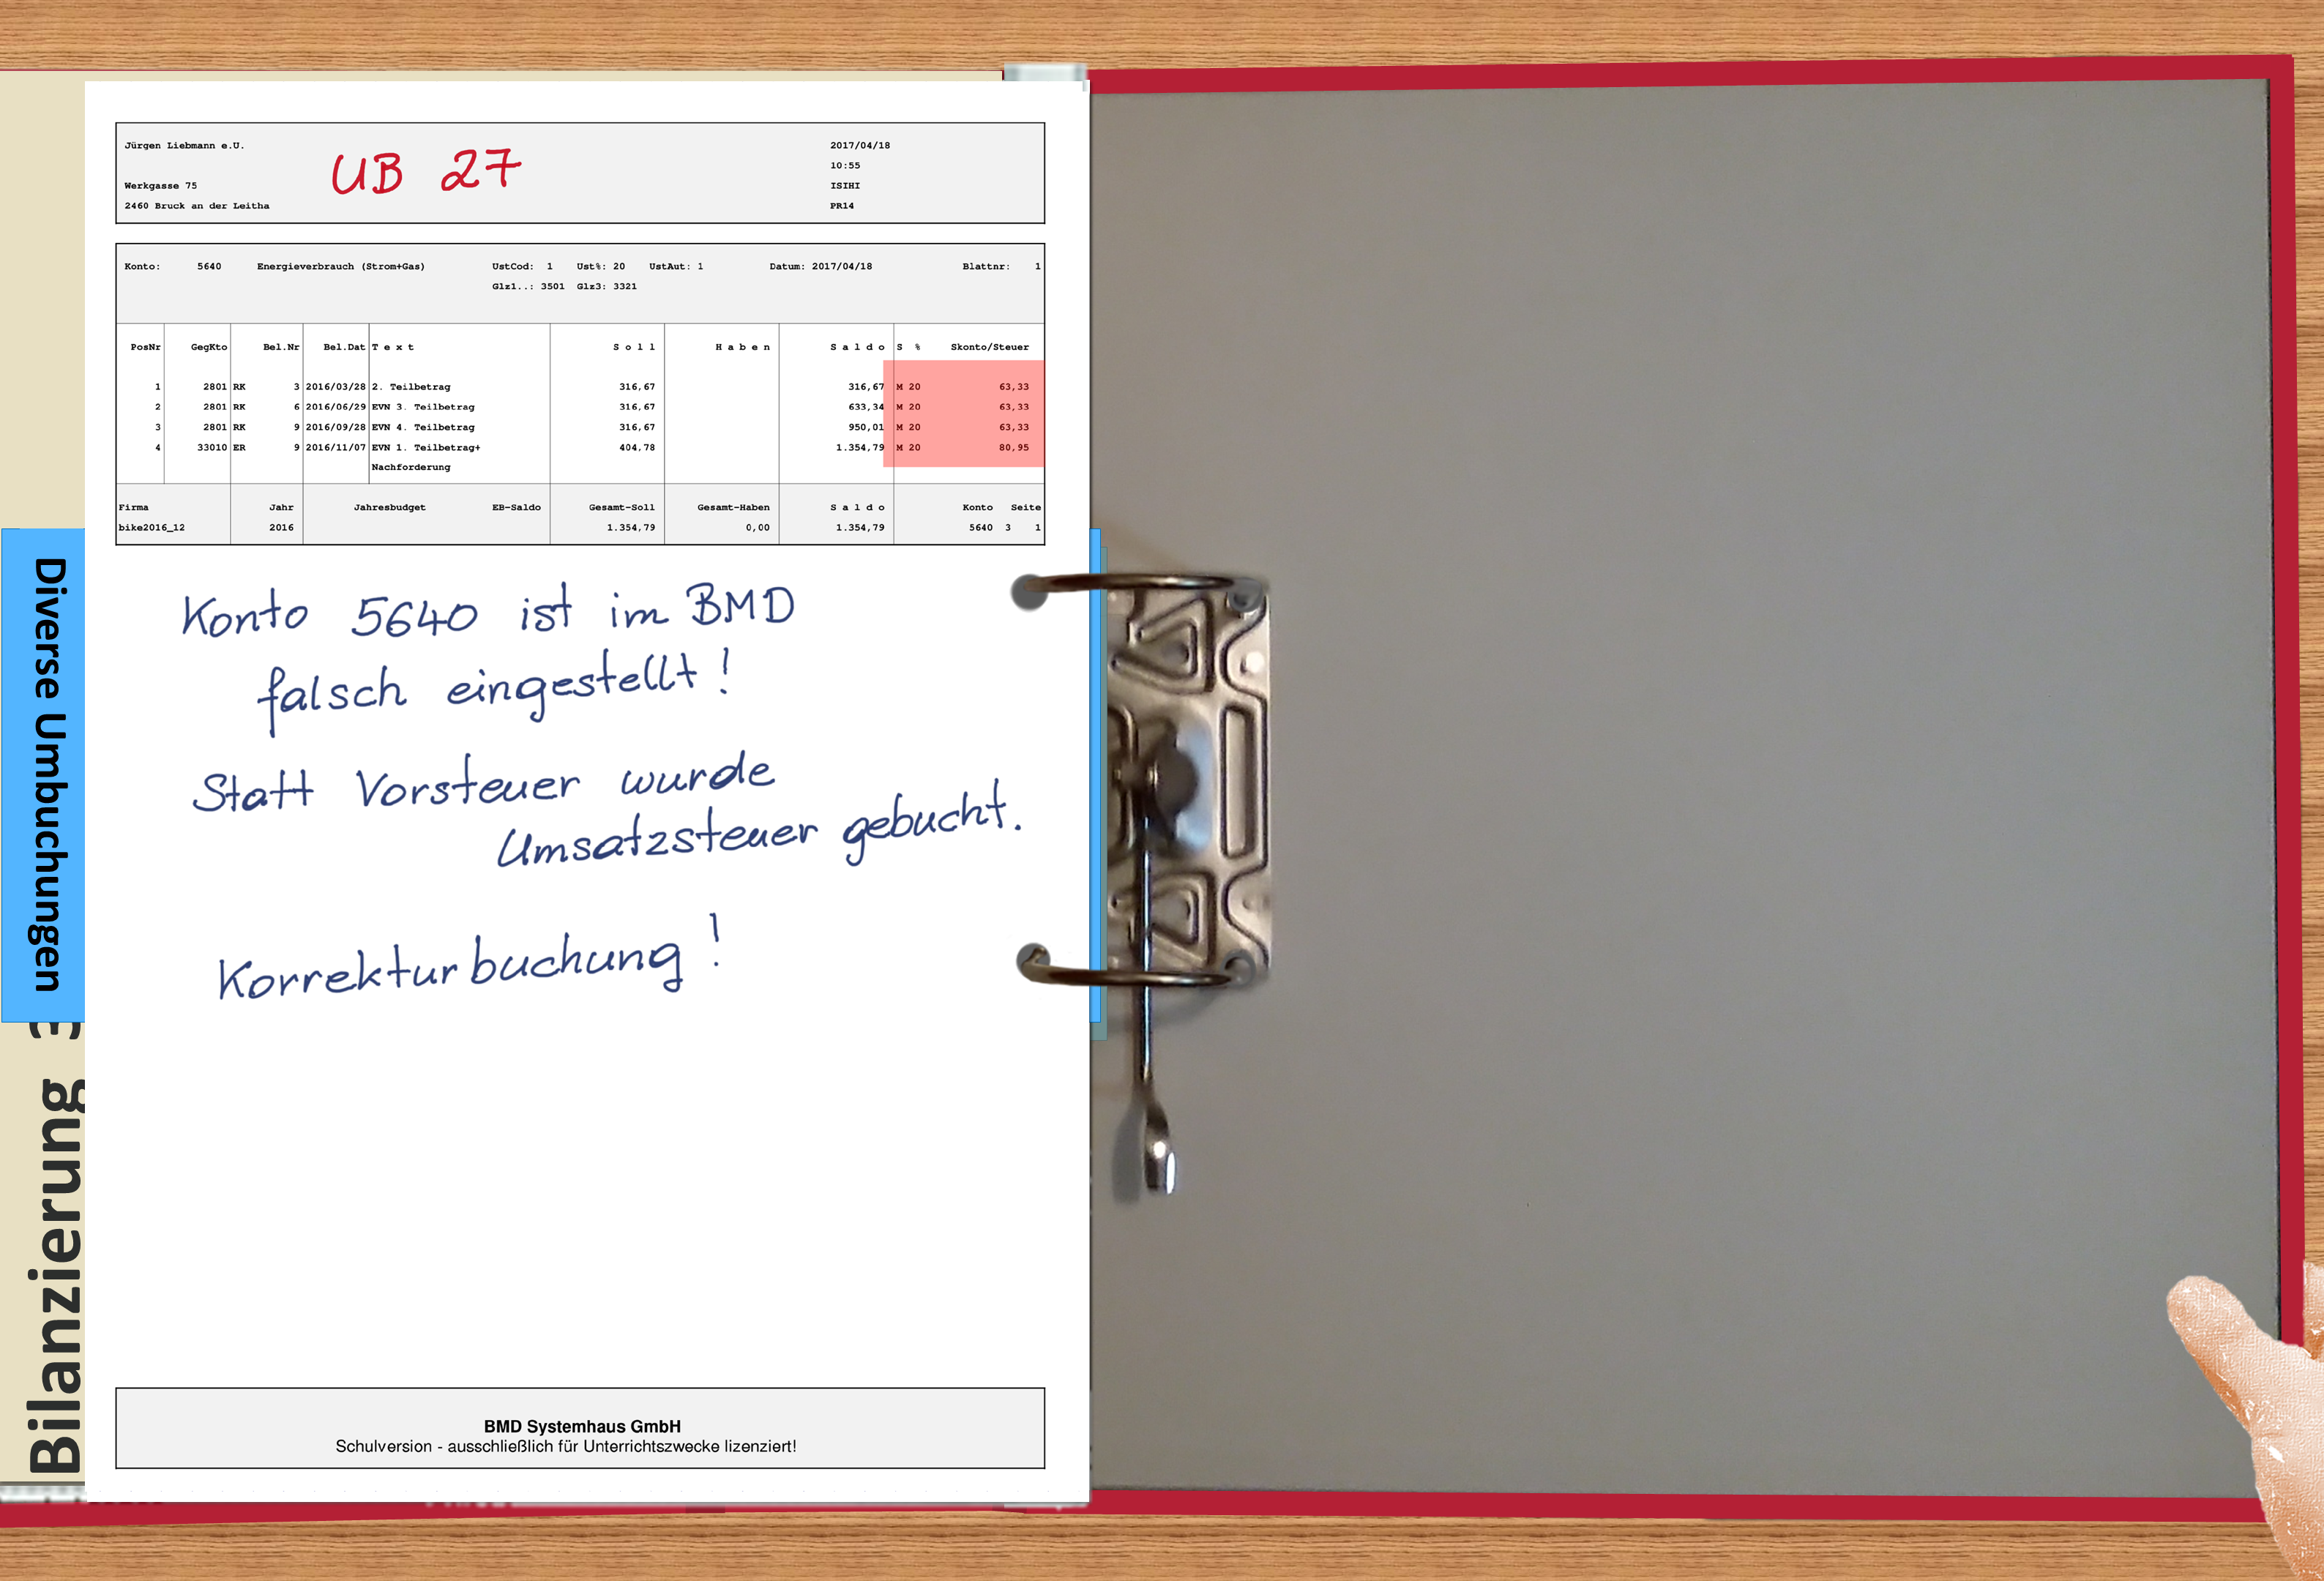 Jürgen Liebmann e.U. 2017/04/18
UB 27
10:55
Werkgasse 75 ISIHI
2460 Bruck an der Leitha PR14
Konto: 5640 Energieverbrauch (Strom+Gas) UstCod: 1 Ust%: 20 UstAut: 1 Datum: 2017/04/18 Blattnr: 1
Glz1..: 3501 Glz3: 3321
PosNr GegKto Bel.Nr Bel.Dat T e x t S o l l H a b e n S a l d o S % Skonto/Steuer
1 2801 RK 3 2016/03/28 2. Teilbetrag 316,67 316,67 M 20 63,33
2 2801 RK 6 2016/06/29 EVN 3. Teilbetrag 316,67 633,34 M 20 63,33
3 2801 RK 9 2016/09/28 EVN 4. Teilbetrag 316,67 950,01 M 20 63,33
4 33010 ER 9 2016/11/07 EVN 1. Teilbetrag+ 404,78 1.354,79 M 20 80,95
Nachforderung
Firma Jahr Jahresbudget EB-Saldo Gesamt-Soll Gesamt-Haben S a l d o Konto Seite
bike2016_12 2016 1.354,79 0,00 1.354,79 5640 3 1
Konto 5640 ist im BMD
falsch eingestellt!
Statt Vorsteuer wurde
Umsatzsteuer gebucht.
Korrekturbuchung!
BMD Systemhaus GmbH
Schulversion - ausschließlich für Unterrichtszwecke lizenziert!
Diverse Umbuchnungen
Bilanzierung